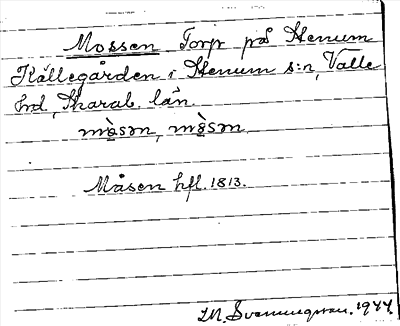 Mossen Torp på Stenum
Källegården i Stenum s:n, Valle
hrd, Skarab. län.
mòsən, mòsən
Måsen hfl. 1813.
1944.